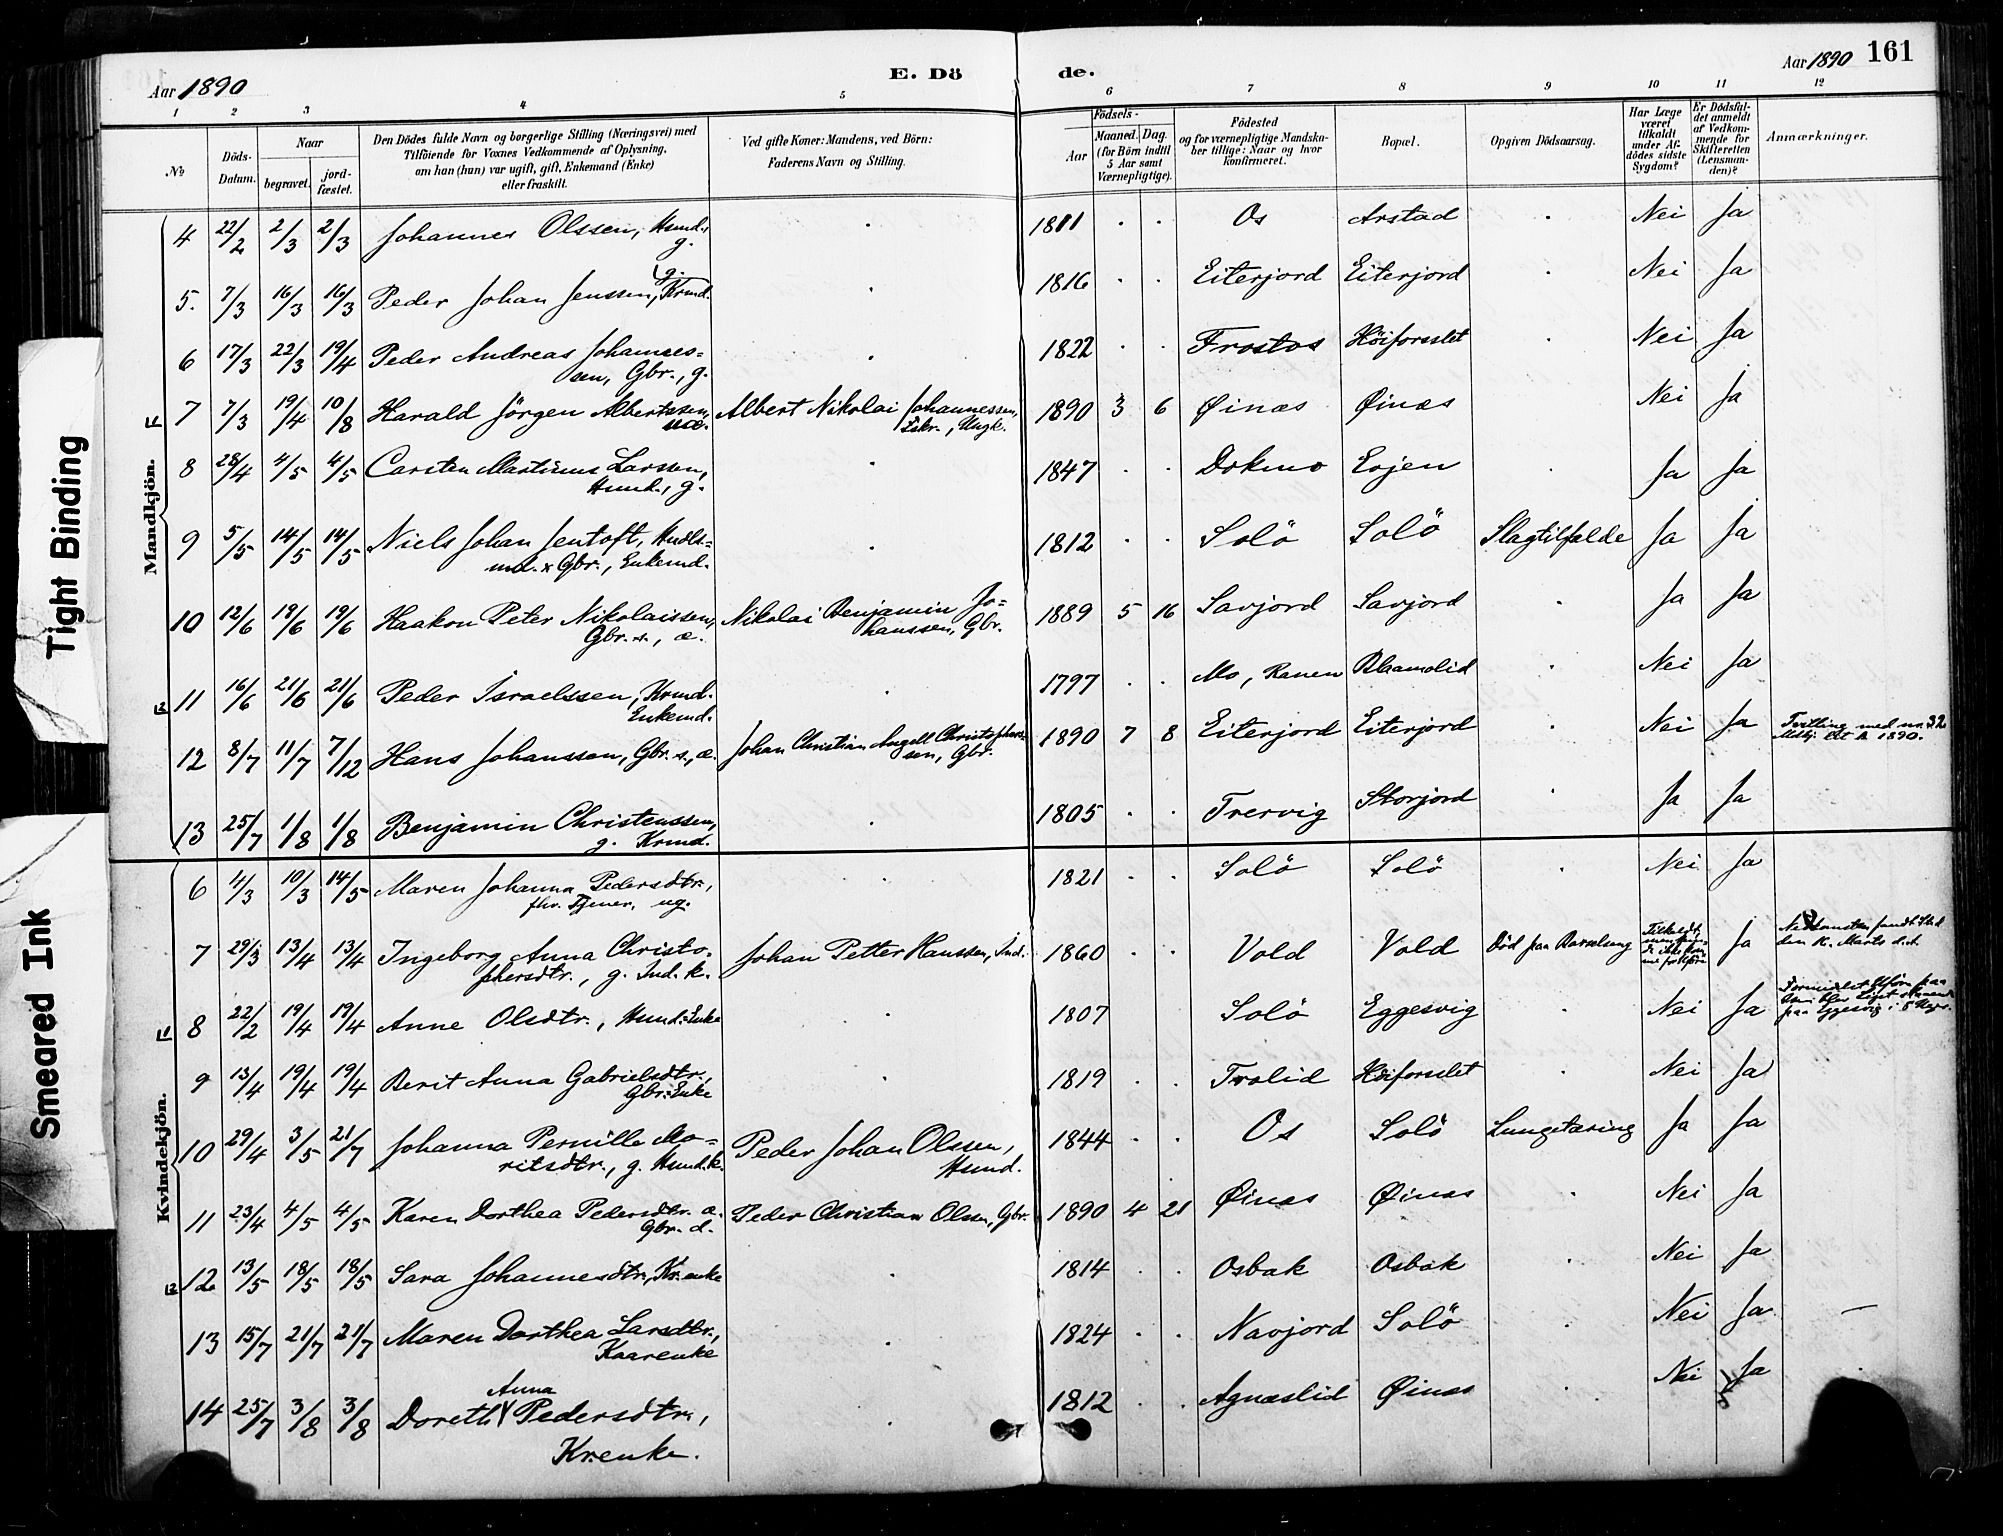 Aar 1890
E. Dö
de.
Aar 1890 161
1 2 3 4 5 6 7 8 9 10 11 12
No
Döds-Datum.
Naar
begravet.
jord-fæstet.
Den Dödes fulde Navn og borgerlige Stilling (Næringsvei) med
Tilföiende for Voxnes Vedkommende af Oplysning,
om han (hun) var ugift, gift, Enkemand (Enke)
eller fraskilt.
Ved gifte Koner: Mandens, ved Börn:
Faderens Navn og Stilling.
Födsels-
Aar
Maaned. Dag.
(for Börn indtil
5 Aar samt
Værnepligtige).
Födested
og for værnepligtige Mandska-
ber tillige: Naar og hvor
konfirmeret.
Bopæl.
Opgiven Dödsaarsag.
Har Læge
været
tilkaldt
under Af-
dödes sidste
Sygdom?
Er Dödsfal-
det anmeldt
af Vedkom-
mende for
Skifteretten
(Lensman-
den)?
Anmærkninger.
Mandkjön.
4 22/2 2/3 2/3 Johannes Olssen, Husmd. g. 1811 Os Arstad Nei Ja
5. 7/3 16/3 16/3 Peder Johan Jenssen, g. Krmd. 1816 Eiterjord Eiterjord Nei Ja
6 17/3 22/3 19/4 Peder Andreas Johannes=
sen, Gbr., g. 1822 Frostos Höiforslet Nei Ja
7 7/3 19/4 10/8 Harald Jörgen Albertssen, Albert Nikolai Johannessen,
Ungk. 1890 3 6 Øinæs Øinæs Nei Ja
8 28/4 4/5 4/5 Carsten Martinus Larssen,
Husmd., g. 1847 Dokmo Evjen Ja Ja
9 5/5 14/5 14/5 Niels Johan Jentoft, Hndls=
md. & Gbr., Enkemd. 1812 Solö Solö Slagtilfælde Ja Ja
10 12/6 19/6 19/6 Haakon Peter Nikolaissen, Nikolai Benjamin Jo=
Gbr. s., æ. hanssen, Gbr. 1889 5 16 Savjord Savjord Ja Ja
11 16/6 21/6 21/6 Peder Israelssen, Krmd.
Enkemd. 1797 Mo, Ranen Blaamolid Nei Ja
12 8/7 11/7 7/12 Hans Johanssen, Gbr. s., æ. Johan Christian Angell Christophers=
sen, Gbr. 1890 7 8 Eiterjord Eiterjord Nei Ja Tvilling med nr. 32
1890.
13 25/7 1/8 1/8 Benjamin Christenssen,
g. Krmd. 1805 Trervig Storjord Ja Ja
Kvindekjön.
6 4/3 19/3 14/5 Maren Johanna Pedersdtr.,
fhv. Tjener, ug. 1821 Solö Solö Nei Ja
7 29/3 13/4 13/4 Ingeborg Anna Christo=
phersdtr., g. Ind. k. Johan Petter Hanssen, Ind. 1860 Vold Vold Död paa Barselseng Ja
8 22/2 19/4 19/4 Anne Olsdtr., Husmd. Enke 1807 Solö Eggesvig Nei Ja
paa Eggesvig i
9 13/4 19/4 19/4 Berit Anna Gabrielsdtr.,
Gbr. Enke 1819 Trolid Höiforslet Nei Ja
10 29/4 3/5 21/7 Johanna Pernille Mo=
ritsdtr., g. Husmd. k. Peder Johan Olssen,
Husmd. 1844 Os Solö Lungetæring Ja Ja
11 23/4 4/5 4/5 Karen Dorthea Pedersdtr. æ.
Gbr. d. Peder Christian Olssen, Gbr. 1890 4 21 Øinæs Øinæs Nei Ja
12 13/5 18/5 18/5 Sara Johannesdtr., Kr. enke 1814 Osbak Osbak Nei Ja
13 15/7 21/7 21/7 Maren Dorthea Larsdtr.,
Kaarenke 1824 Navjord Solö Nei Ja
14 25/7 3/8 3/8 Doreth Anna Pedersdtr.,
Kr. enke. 1812 Agnæslid Øinæs Nei Ja
Tight Binding
Smeared Ink